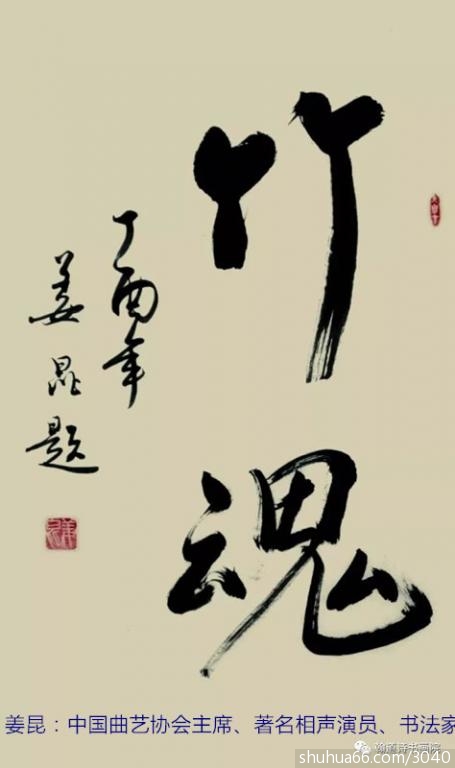 竹魂
丁酉年
姜昆题
姜昆：中国曲艺协会主席、著名相声演员、书法家
shuhua66.com/3040